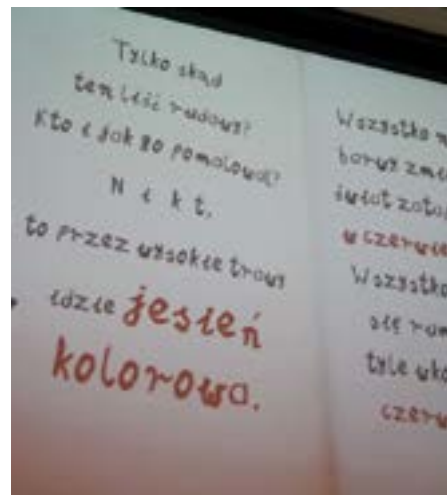 Tylko skąd
ten liść rudawy?
Kto i jak go pomalował?
Nikt,
to przez wysokie trawy
idzie jesień
kolorowa.
Wszystko
barwy
świat
w czerwie
Wszystko
się rum
tyle
czerw